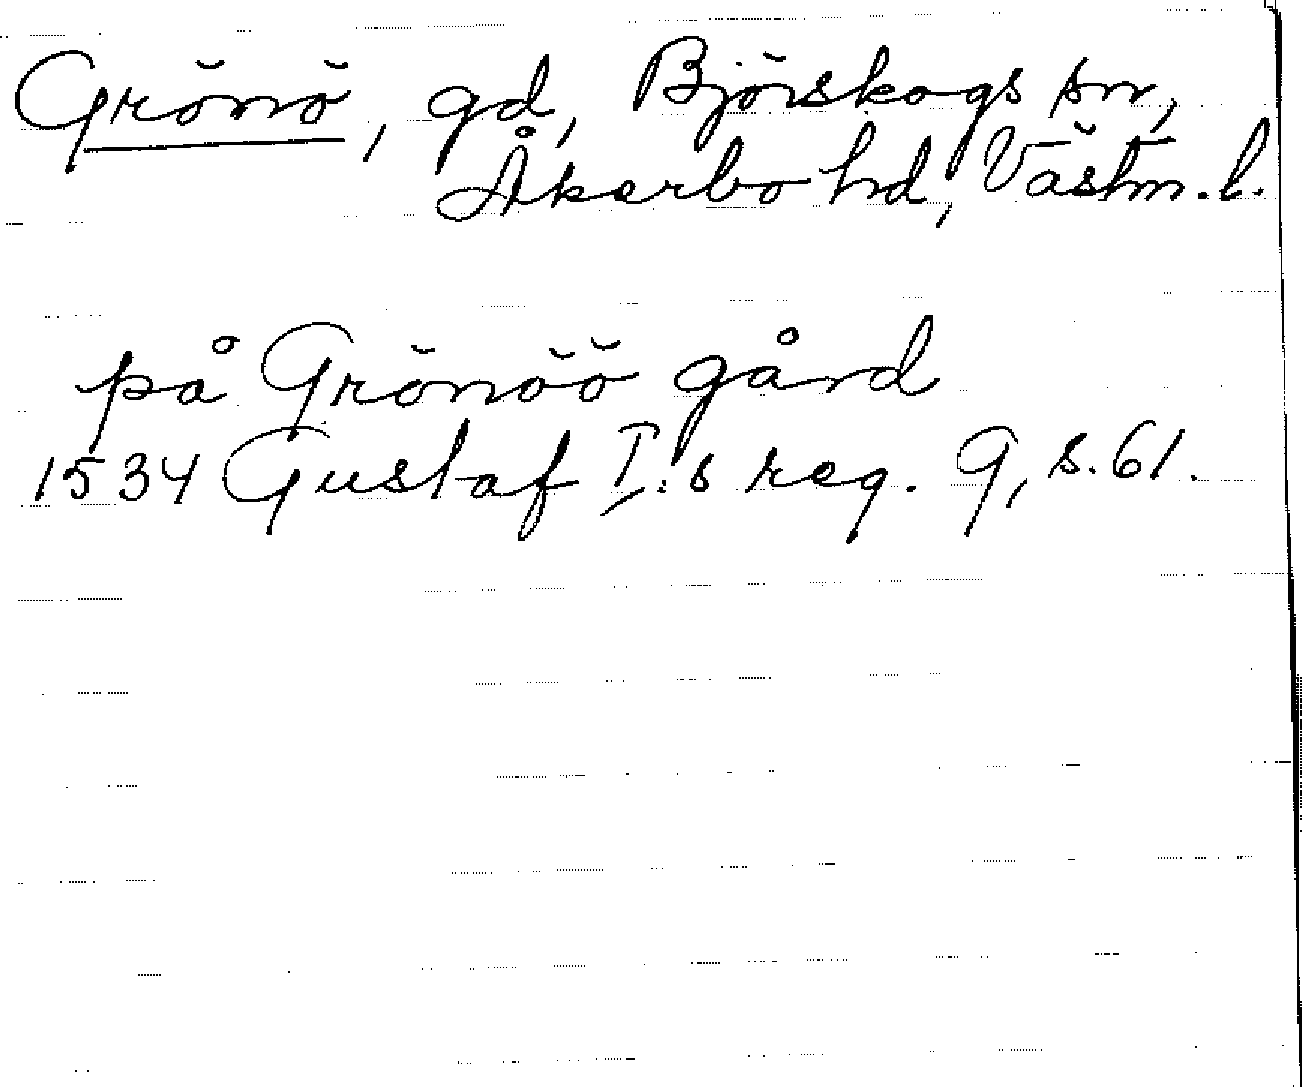 Grönö, gd, Björskogs sn,
Åkerbo hd, Västm. l.
på Grönöö gård
1534 Gustaf I:s reg. 9, s. 61.